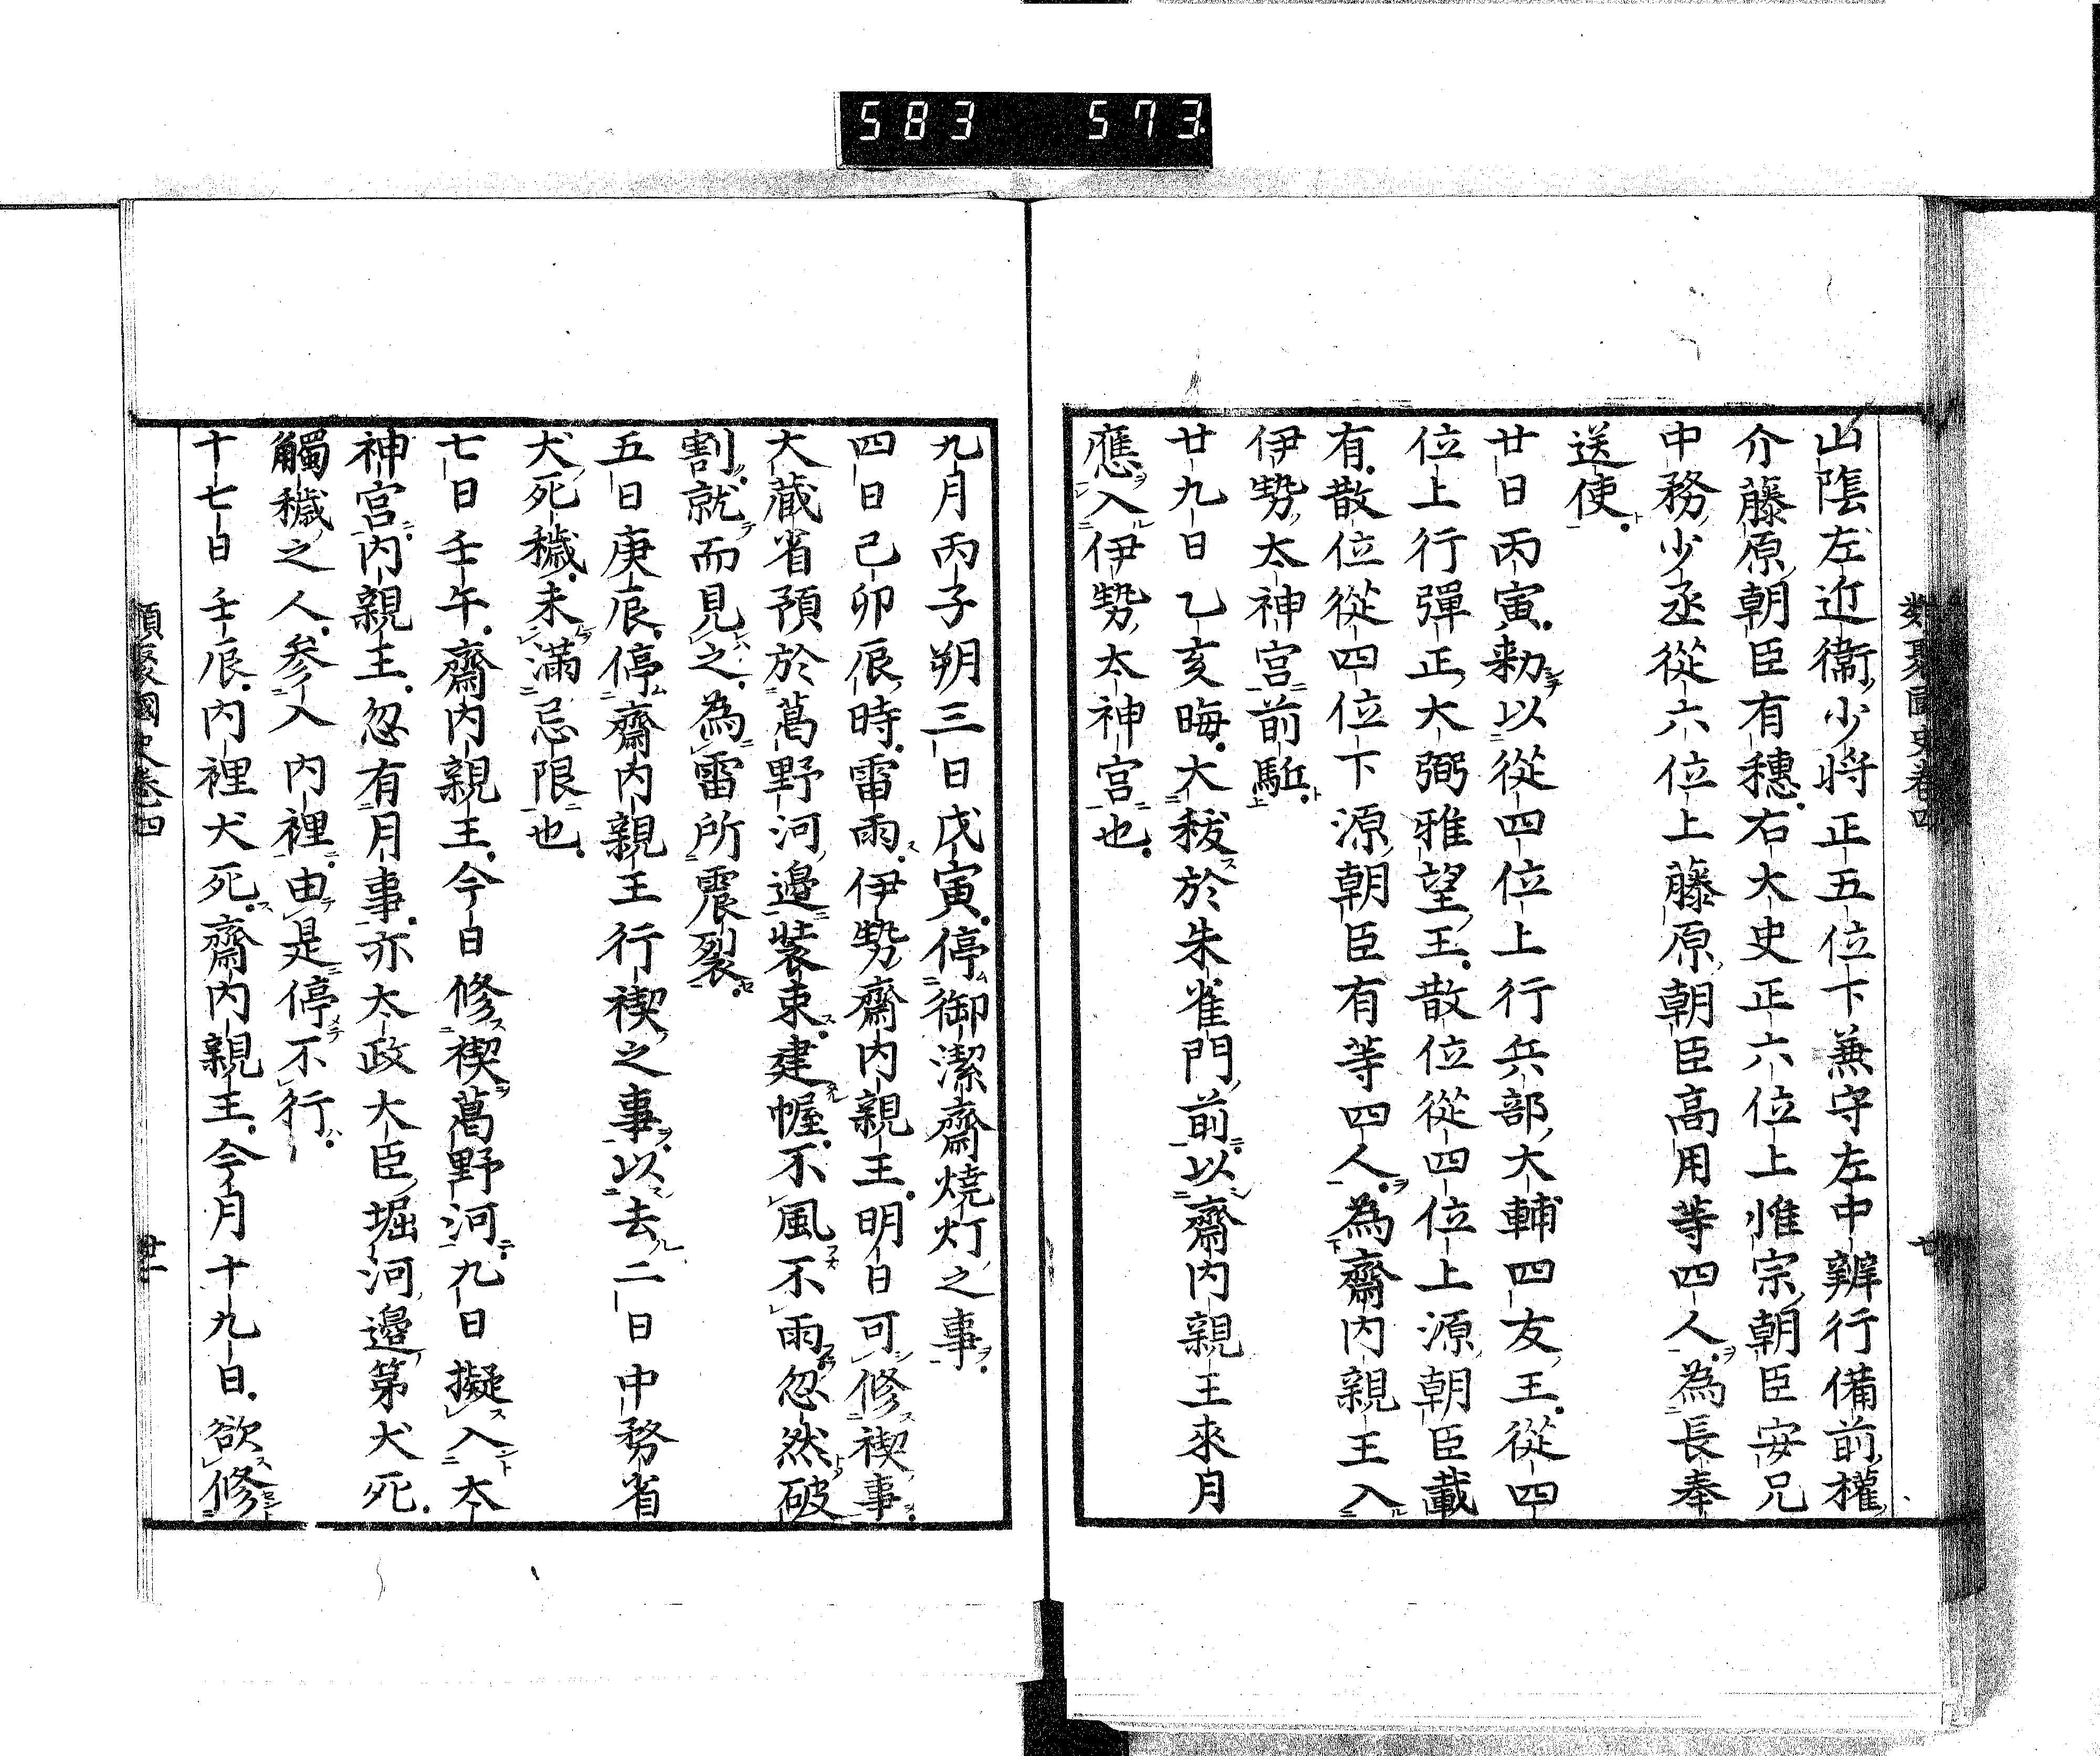 583 573.
類聚國史卷四 廿
山陰左近衞少將正五位下兼守左中辨行備前權
介藤原朝臣有穗右大史正六位上惟宗朝臣安兄
中務少丞從六位上藤原朝臣高用等四人爲長奉
送使
廿日丙寅勅以從四位上行兵部大輔四友王從四
位上行彈正大弼雅望王散位從四位上源朝臣載
有散位從四位下源朝臣有等四人爲齋內親王入
伊勢太神宮前駈
廿九日乙亥晦大秡於朱雀門前以齋內親王來月
應入伊勢太神宮也
九月丙子朔三日戊寅停御潔齋燒灯之事
四日己卯辰時雷雨伊勢齋內親王明日可修禊事
大藏省預於葛野河邊裝束建幄不風不雨忽然破
割就而見之爲雷所震裂
五日庚辰停齋內親王行禊之事以去二日中務省
犬死穢未滿忌限也
七日壬午齋內親王今日修禊葛野河九日擬入太
神宮內親王忽有月事亦太政大臣堀河邊第犬死
觸穢之人參入內裡由是停不行
十七日壬辰內裡犬死齋內親王今月十九日欲修
類聚國史卷四 廿一